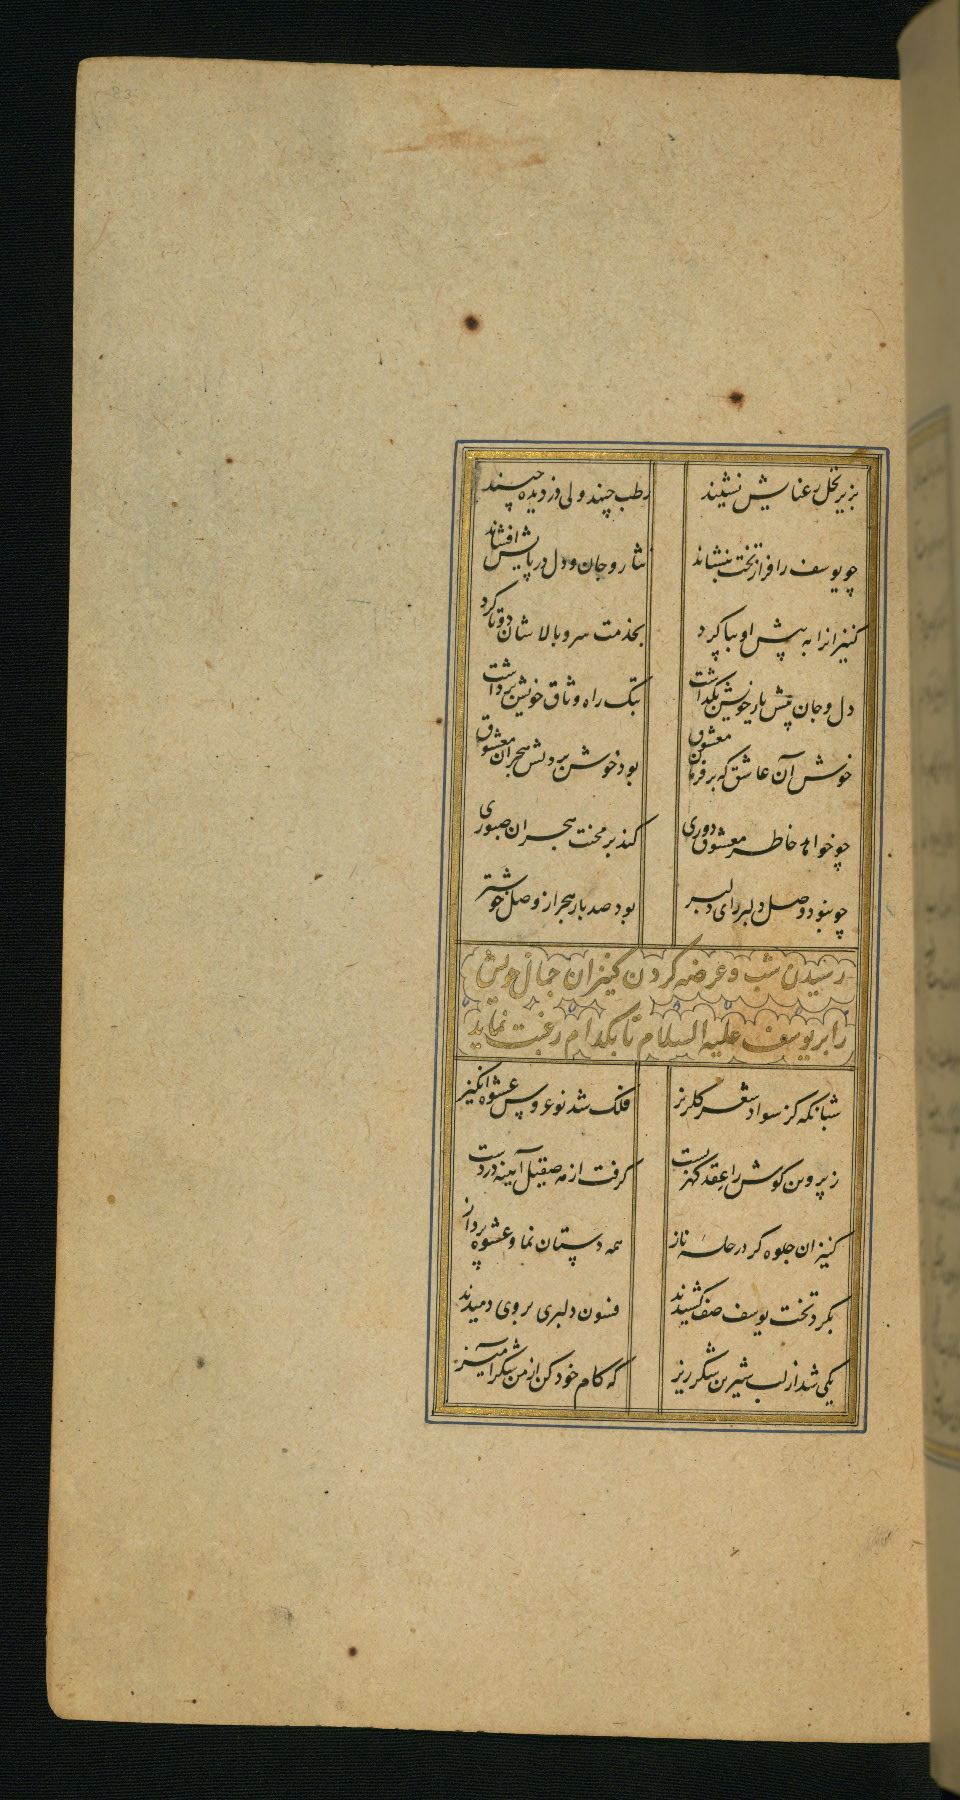 بزیر نخل رعنایش نشیند رطب چیند ولی دزدیده چیند
چو یوسف را فراز تخت بنشاند نثار و جان و دل در پایش افشاند
کنیزانرا به پیش او بپا کرد بخدمت سرو بالاشان دوتا کرد
دل و جان پیش یار خویش بگذاشت بتک راه وثاق خویش برداشت
خوش آن عاشق که بر فرمان معشوق بود خوش بر دلش هجران معشوق
چو خواهد خاطر معشوق دوری کند بر محنت هجران صبوری
چو نبود وصل دلبر رای دلبر بود صد بار هجر از وصل خوشتر
رسیدن شب و عرضه کردن کنیزان جمال خویش
را بر یوسف علیه السلام تا بکدام رغبت نماید
شبانگه کز سواد شعر گلریز فلک شد نوعروس عشوه انگیز
ز پروین گوش را عقد گهر بست گرفت از مه صیقیل آیینه در دست
کنیزان جلوه گر در حله ناز همه دستان نما و عشوه پرداز
بگرد تخت یوسف صف کشیدند فسون دلبری بر وی دمیدند
یکی شد از لب شیرین شکر ریز که کام خود کن از من شکر آمیز